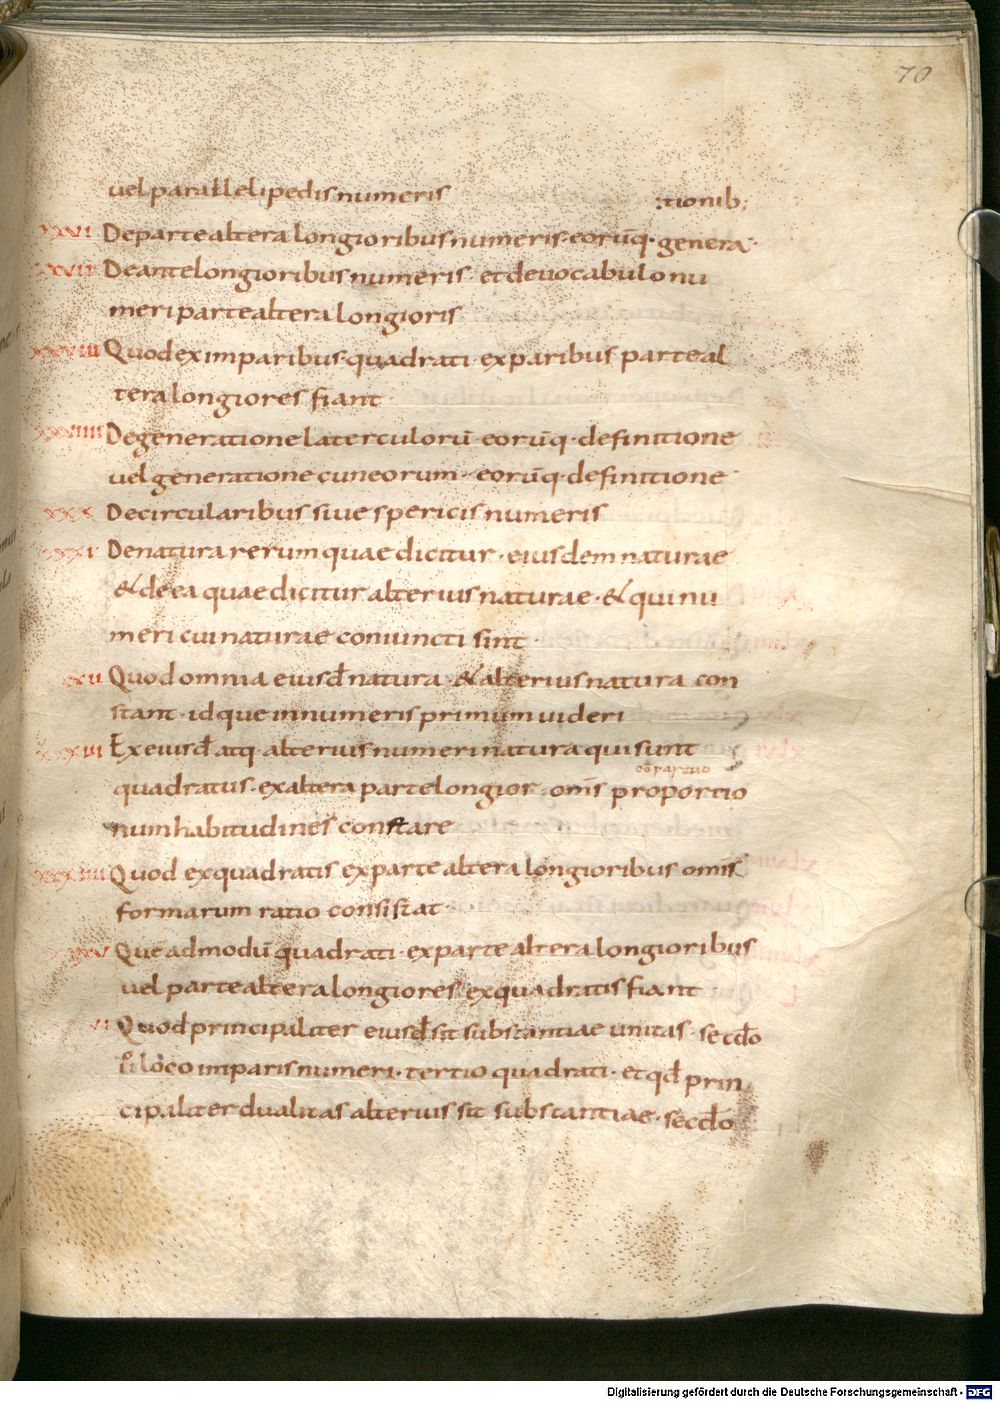 70
uel parallelipedis numeris :tionib;
XXVI De parte altera longioribus numeris · eorūq · genera
XXVII De ante longioribus numeris · et de uocabulo nu
meri parte altera longioris
XXVIII Quod ex imparibus · quadrati · ex paribus parte al
tera longiores fiant ·
XXVIIII De generatione laterculorū · eorūq · definitione
uel generatione cuneorum · eorūq · definitione
XXX De circularibus siue spericis numeris
XXXI De natura rerum quae dicitur · eiusdem naturae
& de ea quae dicitur alterius naturae · & qui nu
meri cui naturae coniuncti sint ·
Quod omnia eiusđ natura · & alterius natura con
stant · id que in numeris primum uideri
XXXIII Ex eiusđ atq · alterius numeri natura qui sunt
quadratus · ex altera parte longior · om̄s proportio
num habitudines constare
XXXIIII Quod ex quadratis ex parte altera longioribus om̄is
formarum ratio consistat ·
XXV Quēadmodū quadrati · ex parte altera longioribus
uel parte altera longiores ex quadratis fiant
VI Quod principaliter eiusđ sit substantiae unitas · secđo
ů loco imparis numeri · tertio quadrati · et qđ prin
cipaliter dualitas alterius sit substantiae · secđo
Digitalisierung gefördert durch die Deutsche Forschungsgemeinschaft - DFG